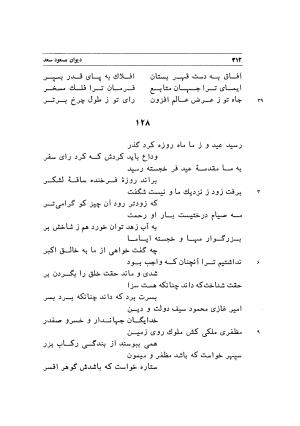 ۳۱۲ دیوان مسعود سعد
آفاق به دست قهر بستان افلاک به پای قدر بسپر
ایمای ترا جهان متابع فرمان ترا فلک مسخر
جاه تو ز عرض عالم افزون رای تو ز طول چرخ برتر ۳۹
۱۲۸
رسید عید و ز ما ماه روزه کرد گذر
وداع باید کردش که کرد رای سفر
به ما مقدمهٔ عید فر خجسته رسید
براند روزهٔ فرخنده ساقهٔ لشکر
برفت زود ز نزدیک ما و نیست شگفت ۳
که زودتر رود آن چیز کو گرامی‌تر
مه صیام درختیست بار او رحمت
به آب زهد توان خورد هم ز شاخش بر
بزرگوار مها و خجسته ایاما
چه گفت خواهی از ما به خالق اکبر
نداشتیم ترا آنچنان که واجب بود ۶
شدی و ماند حقت خلق را بگردن بر
حقت شناخت که داند چنانکه هست سزا
بسرت برد که داند چنانکه برد بسر
امیر غازی محمود سیف دولت و دین
خدایگان جهاندار و خسرو صفدر
مظفری ملکی کش ملوک روی زمین ۹
همی ببوسند از بندگی رکاب بزر
سپهر خواست که باشد مظفر و میمون
ستاره خواست که باشدش گوهر افسر